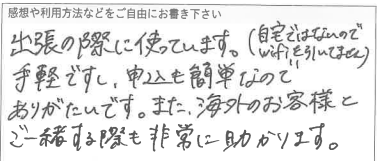 感想や利用方法などをご自由にお書き下さい
出張の際に使っています。(自宅ではないので
wifiを引いてません)
手軽ですし、申込も簡単なので
ありがたいです。また、海外のお客様と
ご一緒する際も非常に助かります。